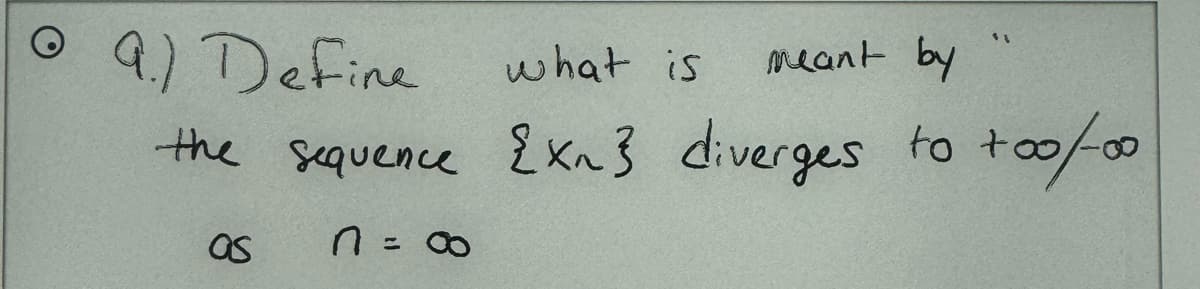 9.) Define what is meant by "
the sequence {xn} diverges to +∞/-∞
as n = ∞